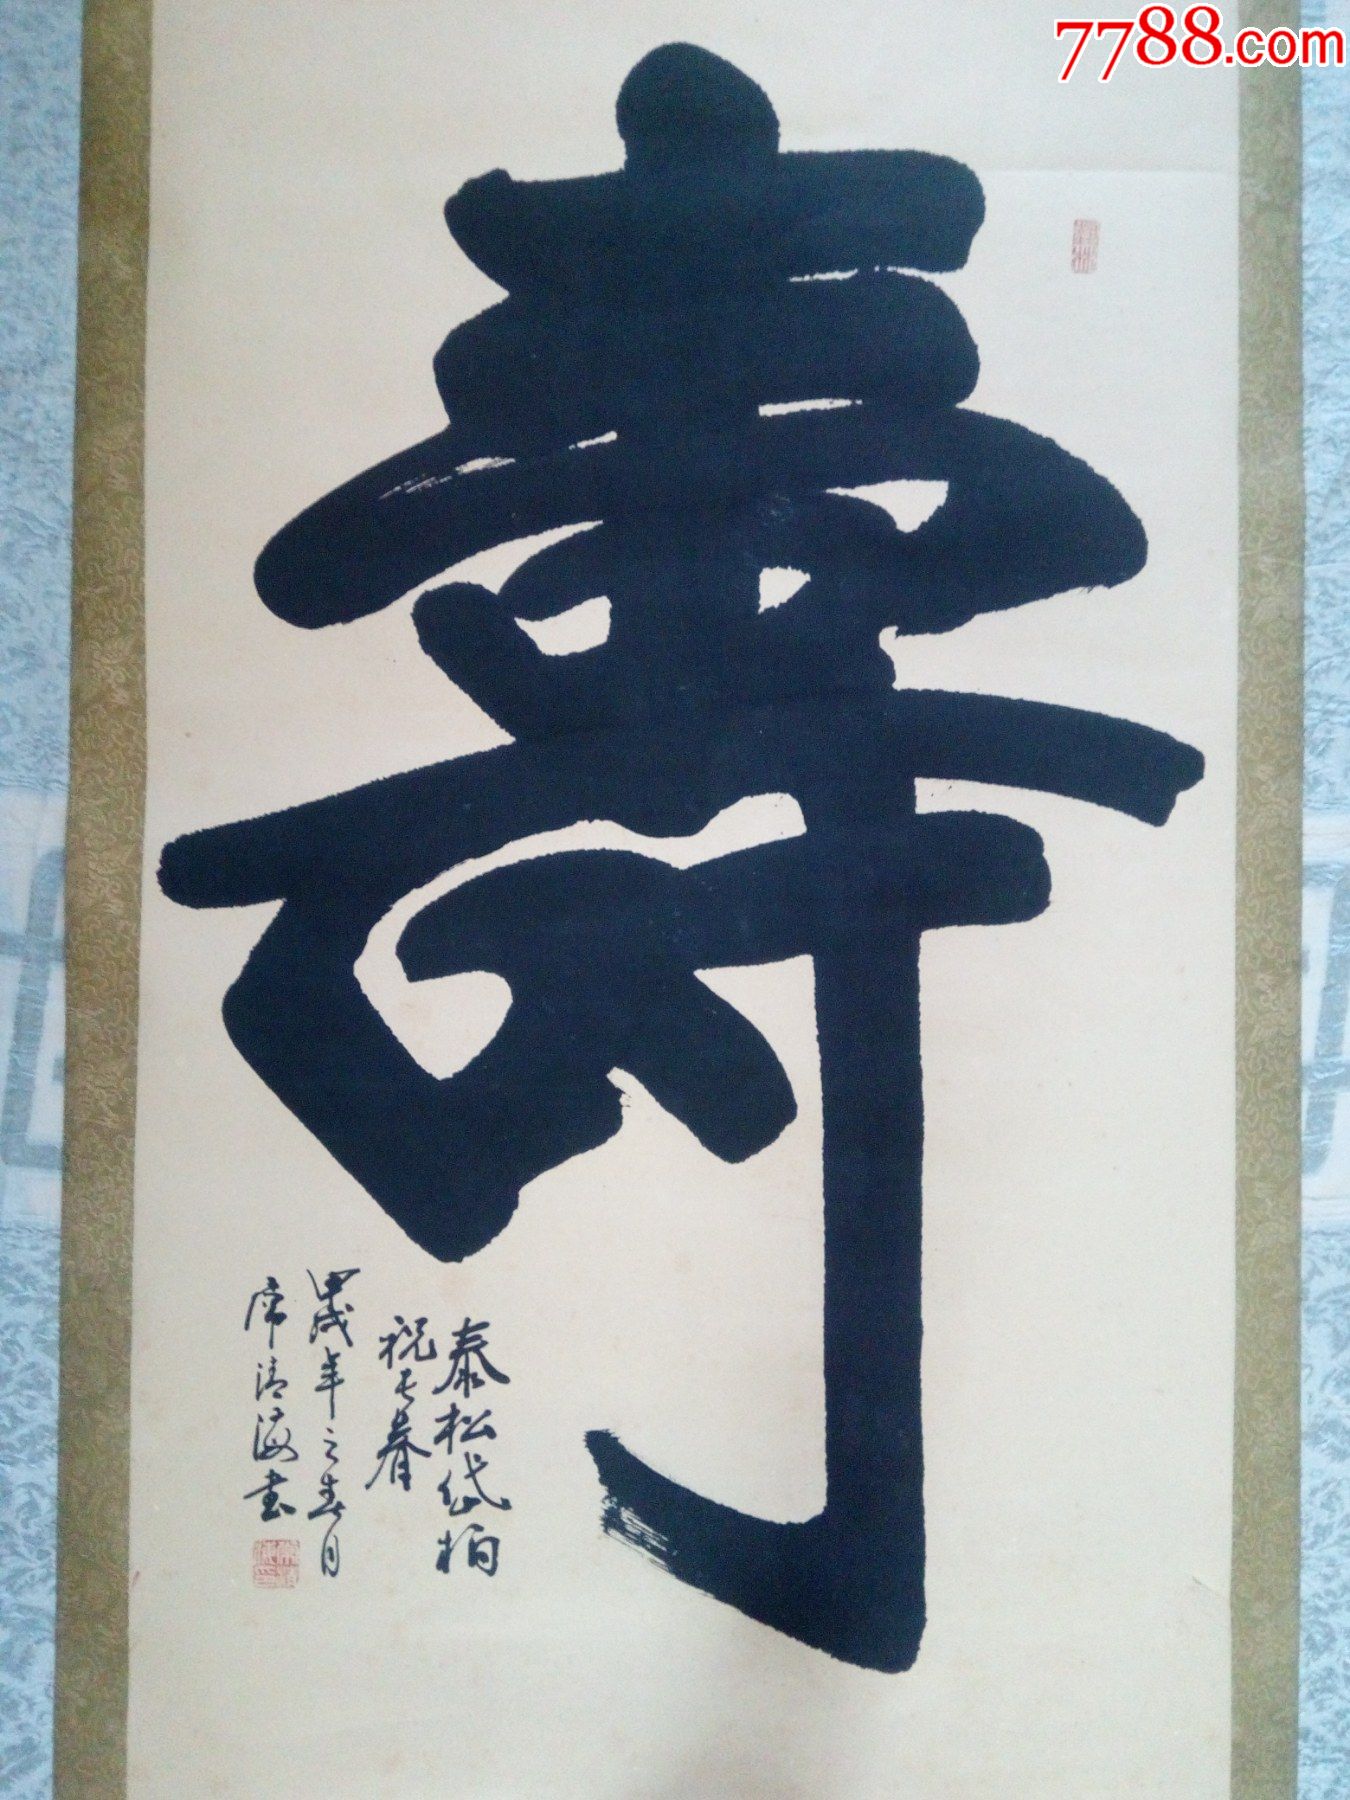 7788.com
壽
泰松岱柏
祝长春
甲戌年之春月
席清海书